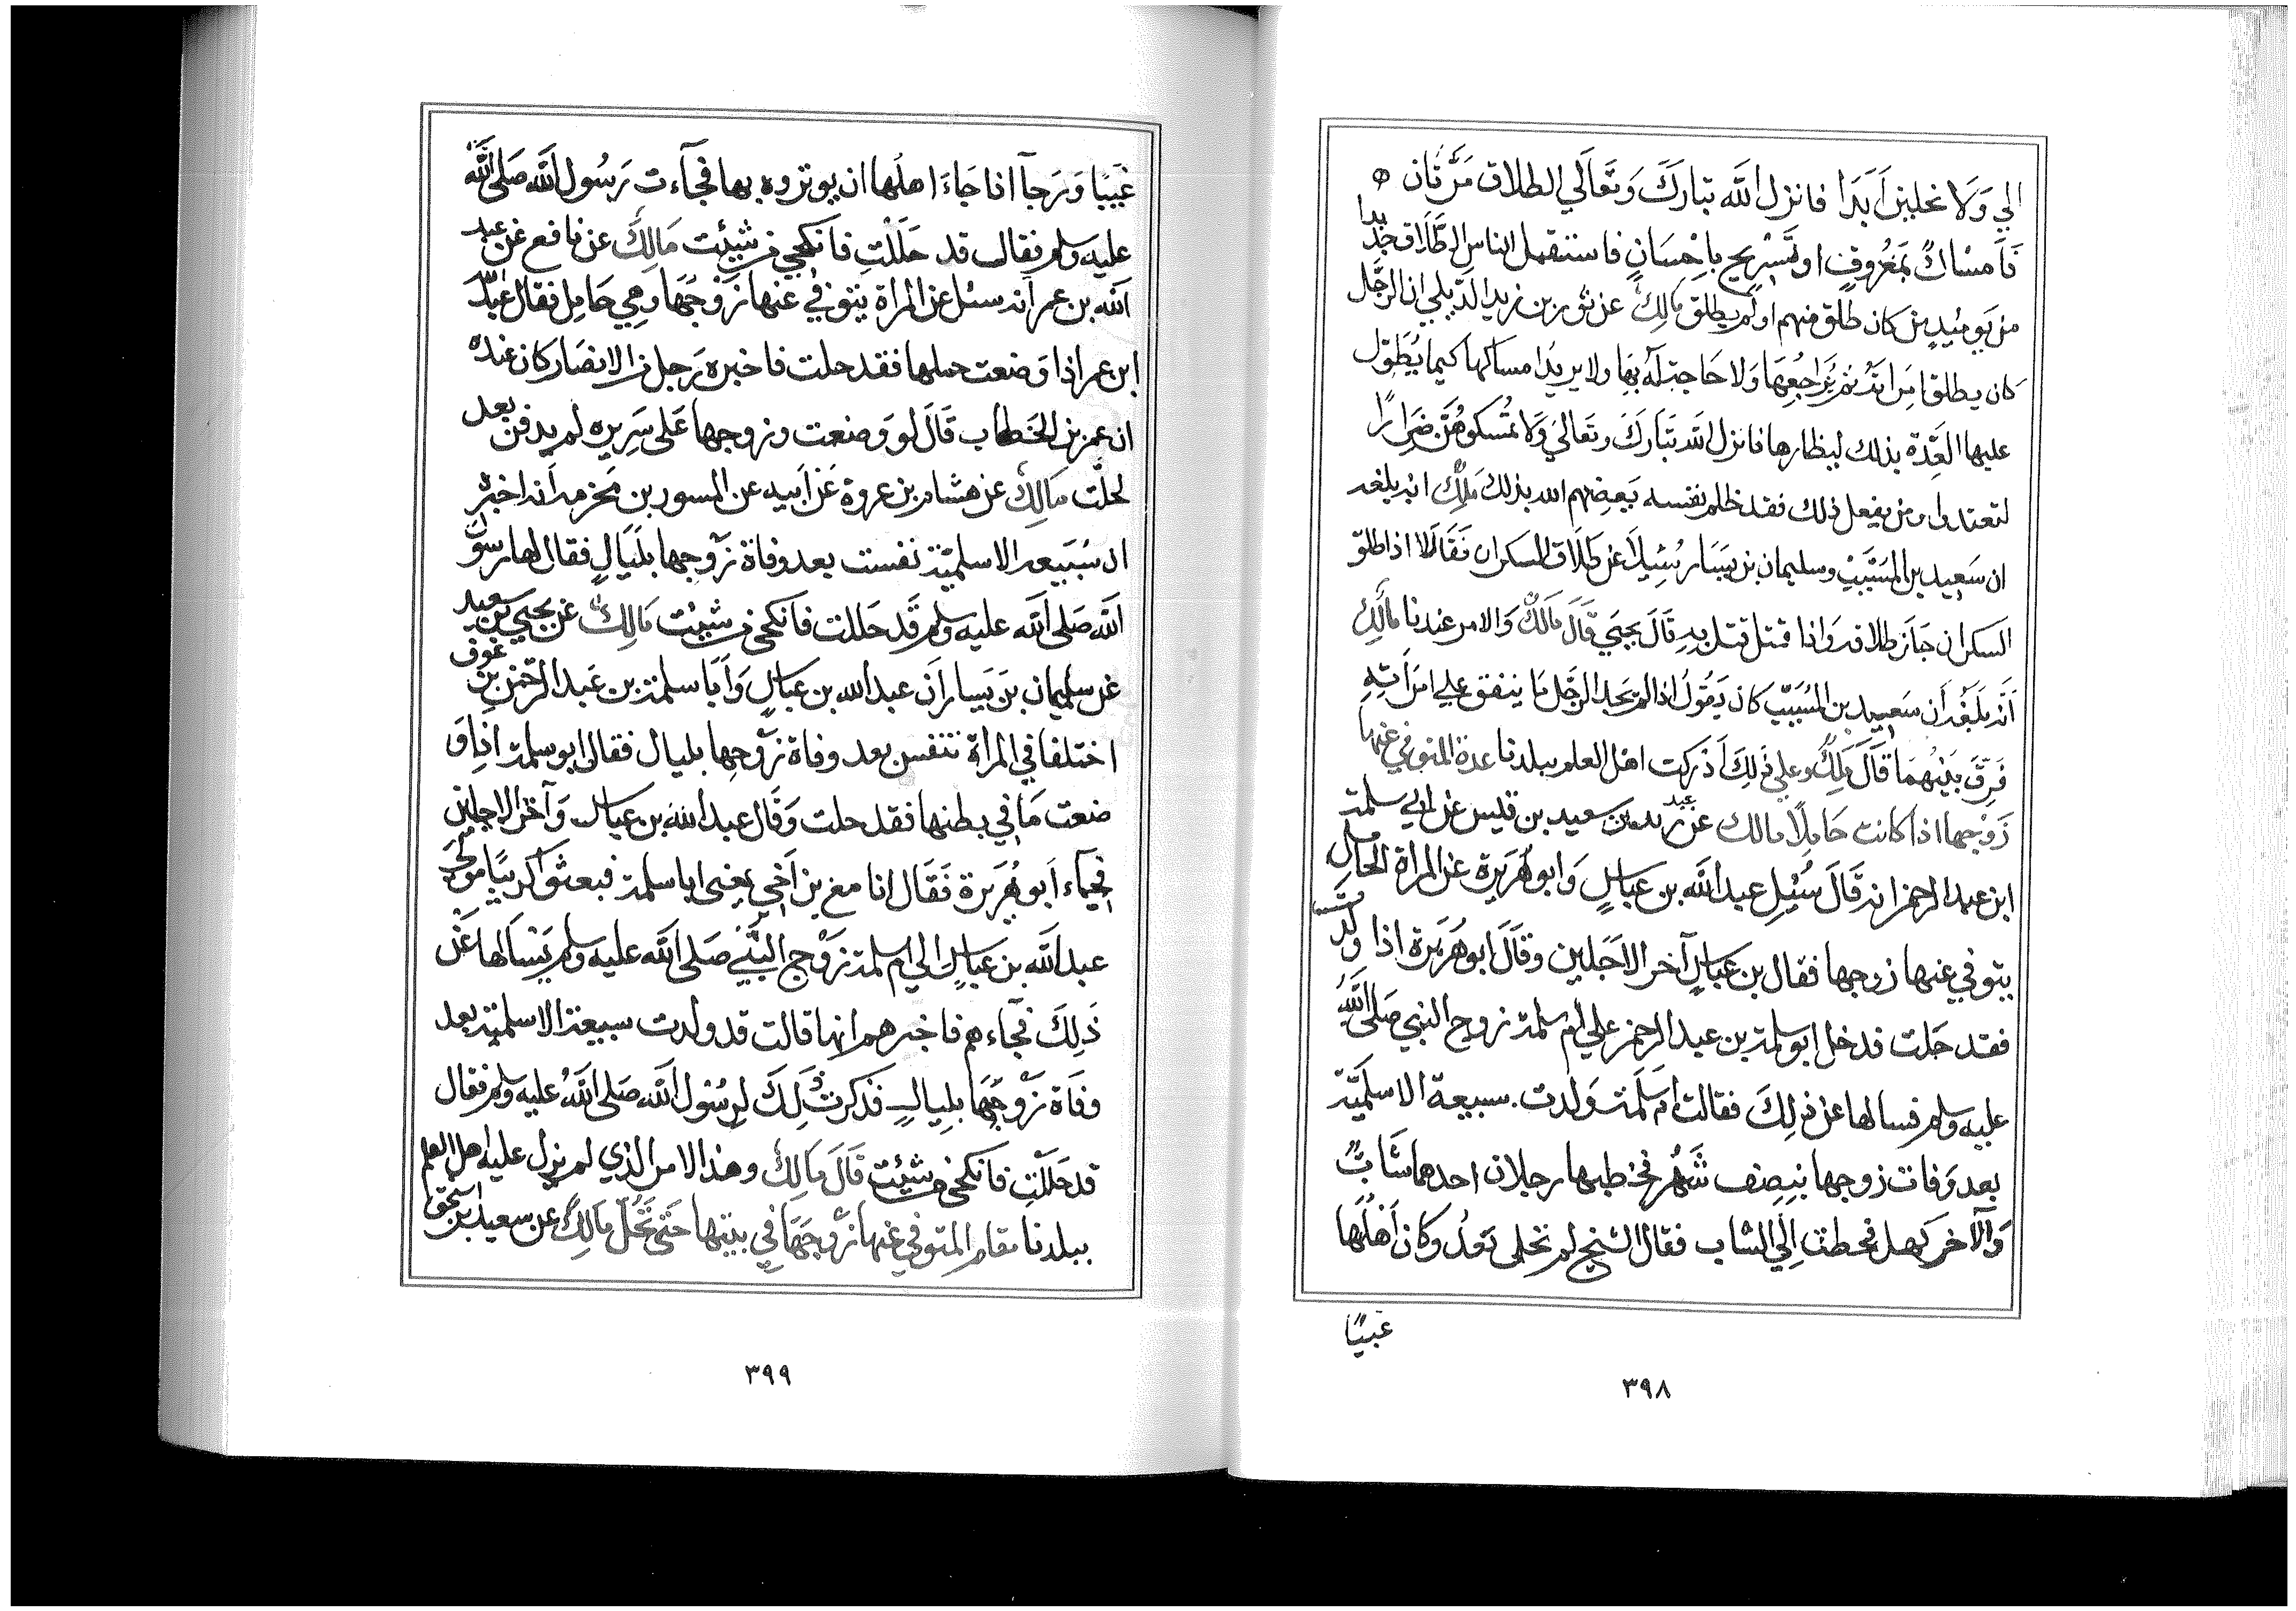 الي وَلَا تحلين اَبَدَا فانزل الله تبارَكَ وَتَعَالَي الطلاق مَرَّتَان
فَاَمْسَاكٌ بمَعْرُوفٍ او تَسْرِيح بِاحْسَانٍ فاستقبل الناس الطَّلَاق جديدا
من يَوْمئِدٍ من كان طلق منهم اولم يطلق مَالِكٌ عن ثور بن زيد الدِّيلي ان الرَّجل
كان يطلق امراَتَهُ ثم يُرَاجِعُهَا وَلا حَاجة لَهُ بِهَا ولا يريد امساكها كيما يُطَوّل
عليها العِّدة بذلك ليظارها فانزل الله تَبَارَكَ وتَعَالَي وَلَا تُمْسكوهُنَّ ضِرَارًا
لتعتدوا ومن يفعل ذلك فقد ظلم نفسه يَعِظهم الله بذلك مَالِكٌ انه بلغه
ان سَعِيد بن المُسَيَّبْ وسليمان بن يَسَار سُئِيلَا عَن طَلَاق السكران فَقَالَا اذا طلق
السكران جَاَز طلاقه وَاذا قتل قتل بِهِ قَالَ يحيَي قَالَ مَالِكٌ وَالامر عندنا مالِكٌ
اَنّه بَلَغَهُ اَن سَعِيد بن المُسَيّب كان يَقُولُ اذا لم يَجد الرجُل مَا ينفق علي امرَاَتِهِ
فُرِّقَ بَيْنهُمَا قَالَ مَالِكٌ وعلي ذلِكَ اَدْركت اهل العلم ببلدنا عدة المتوفي عنها
زَوْجها اذا كانت حَامِلًا مالك عن عبد ربه بن سعيد بن قيس عن ابي سلمة
ابن عبد الرحمن انه قَالَ سُئِل عبد الله بن عباسٍ وَابو هُرَيرة عن المراة الحامل
يتوفي عنها زوجها فقال بن عبَاسٍ آخر الاَجَلين وقَالَ ابو هُرَيرة اذا وَلَدَت
فقد حَلت فدخل ابو سلمة بن عبد الرحمن علي ام سلمة زوج النبي صَلى الله
عليه وسلم فسالها عن ذلِكَ فقالت ام سَلَمَة وَلدت سبيعة الاسلميّة
بعد وَفات زوجها بنِصف شَهْر فخطبها رجلان احدهما شَابٌ
وَالآخر كهل فحطت اِلَي الشاب فقال الشيخ لم تحلى بَعدُ وكان اَهْلُها
غيبًا
٣٩٨
غَيَبًا وَرَجآ اذا جَاءَ اهلُها ان يوثروه بها فجآءت رَسُول الله صَلى الله
عليه وسلم فقال قد حَلَلْتِ فانكحي من شيئت مَالِكٌ عن نافع عن عبد
الله بن عمر اَنه سئل عن المراة يتوفي عنها زَوْجُهَا وهي حَامِل فقال عبد الله
ابن عمر اذا وَضعت حملها فقد حلت فاخبره رَجل من الانصَار كان عنده
ان عمر بن الخَطاب قَالَ لو وَضعت وزوجها عَلى سَرِيره لم يدفن بعد
لحلَّت مَالِكٌ عن هشام بن عروة عَن اَبيه عن المسور بن مَخرمه اَنه اخبره
ان سُبَيعه الاسلميّة نفست بعد وفاة زَوجها بلَيَالٍ فقال لها رسول
الله صَلى الله عليه وسلم قَد حَلَلت فانكحى من شيئت مَالِكٌ عن يحيَي بن سعيد
عن سليمان بن يَسار اَن عبد الله بن عباسٍ وَاَبَا سلمة بن عَبد الرحمن بن عَوف
اختلفا في المراة تنفس بعد وفاة زَوْجِها بليال فقال ابو سلمة اذا وَ
ضعت مَا في بطنها فقد حلت وَقَال عبد الله بن عباس وَآخر الاجلين
فجاء اَبو هُرَيرة فَقَال انا مع بن اَخي يعنِى ابا سلمة فبعثوا كريبًا مولى
عبد الله بن عباسٍ الي ام سلمة زَوْج النَّبِي صَلى الله عليه وسلم يَسالها عَنْ
ذَلِكَ فجآءهم فاخبرهم انها قالت قد ولدت سبيعة الاسلمية بعد
وفَاة زَوْجِهَا بليالٍ فَذكرت ذَلِكَ لرسُول الله صَلى الله عليه وسلم فقال
قد حَلَلْتِ فانكحى من شيئت قَالَ مَالِكٌ وهذا الامر الذي لم يزل عليه اهل العلم
ببلدنا مقام المتوفي عنها زَوجهَا في بيتها حَتى تَحُلّ مَالِكٌ عن سعيد بن اسحق
٣٩٩